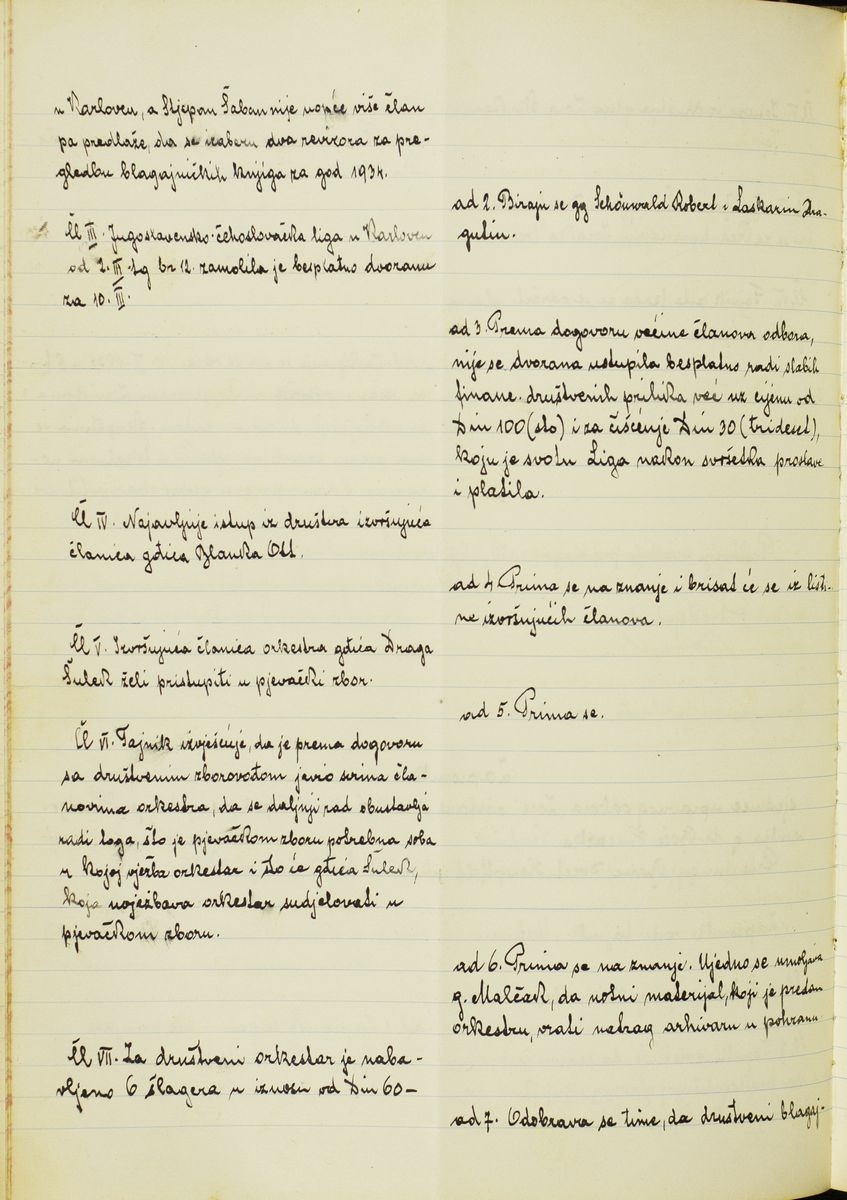 u Karlovcu, a Stjepan Šaban nije uopće više član
pa predlaže, da se izaberu dva revizora za pre-
gledbu blagajničkih knjiga za god 1934.
ad 2. Biraju se gg Schönwald Robert i Laskarin Dra-
gutin.
Čl III. Jugoslavensko-čehoslovačka liga u Karlovcu
od 2. III. tg br 12. zamolila je besplatno dvoranu
za 10. III.
ad 3. Prema dogovoru većine članova odbora,
nije se dvorana ustupila besplatno radi slabih
financ. društvenih prilika već uz cijenu od
Din 100 (sto) i za čišćenje Din 30 (trideset),
koju je svotu Liga nakon svršetka proslave
i platila.
Čl IV. Najavljuje istup iz društva izvršujuća
članica gđica Blanka Ott.
ad 4 Prima se na znanje i brisat će se iz listi-
ne izvršujućih članova.
Čl V. Izvršujuća članica orkestra gđica Draga
Šulek želi pristupiti u pjevački zbor.
ad 5. Prima se.
Čl VI. Tajnik izvješćuje, da je prema dogovoru
sa društvenim zborovođom javio svima čla-
novima orkestra, da se daljnji rad obustavlja
radi toga, što je pjevačkom zboru potrebna soba
u kojoj vježba orkestar i što će gđica Šulek,
koja uvježbava orkestar sudjelovati u
pjevačkom zboru.
ad 6. Prima se na znanje. Ujedno se umoljava
g. Malčak, da notni materijal, koji je predan
orkestru, vrati natrag arhivaru u pohranu
Čl VII. Za društveni orkestar je naba-
vljeno 6 šlagera u iznosu od Din 60-
ad 7. Odobrava se time, da društveni blagaj-